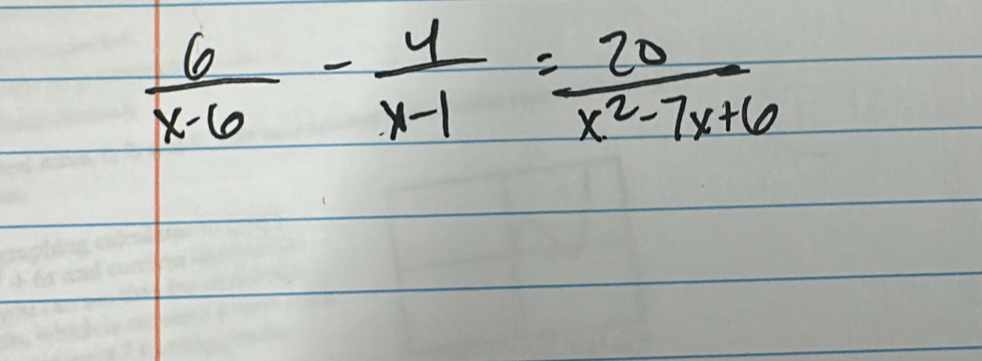 6/(x-6) - 4/(x-1) = 20/(x²-7x+6)